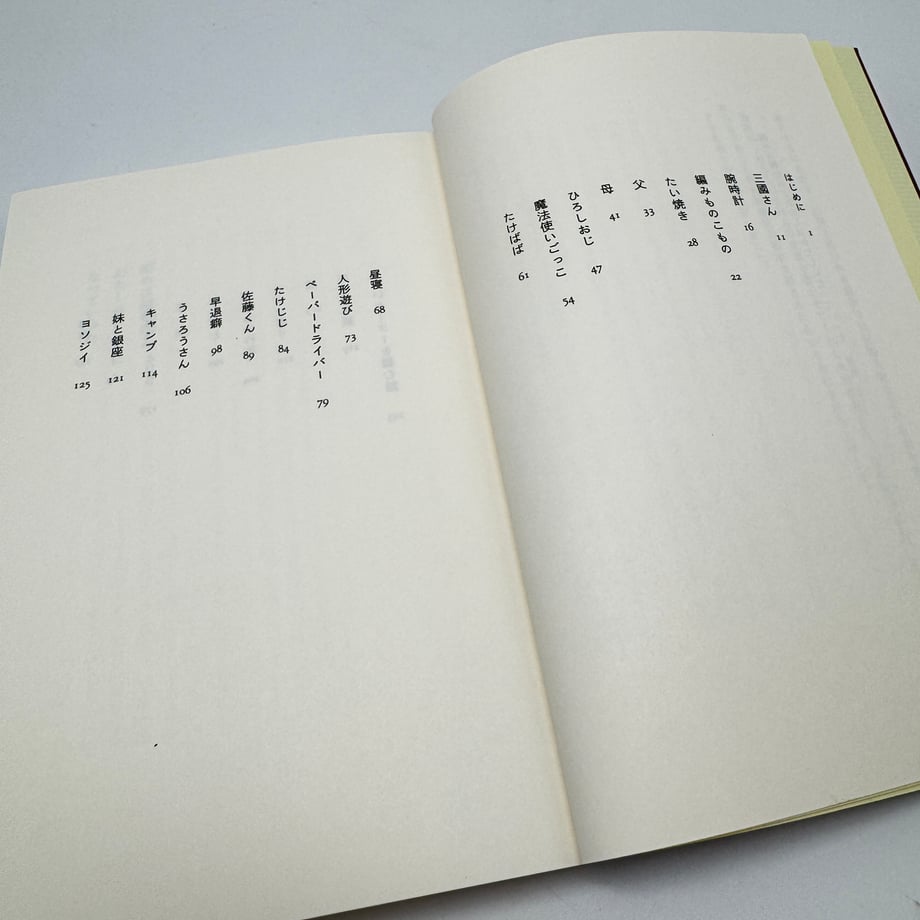 はじめに 1
三國さん 11
腕時計 16
編みものこもの 22
たい焼き 28
父 33
母 41
ひろしおじ 47
魔法使いごっこ 54
たけばば 61
昼寝 68
人形遊び 73
ペーパードライバー 79
たけじじ 84
佐藤くん 89
早退癖 98
うさろうさん 106
キャンプ 114
妹と銀座 121
ヨソジイ 125